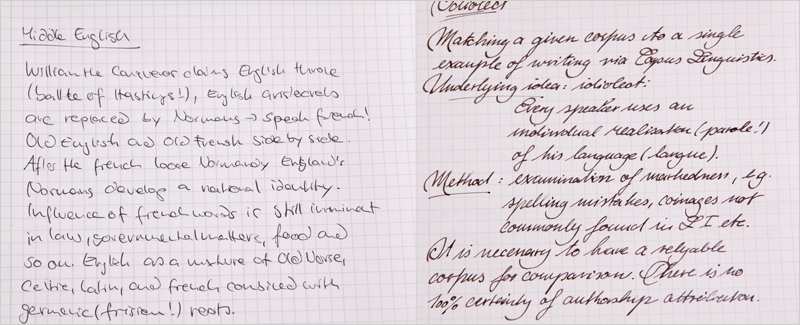 Middle English
William the Conqueror claims English throne
(battle of Hastings!), English aristocrats
are replaced by Normans → speak french!
Old English and Old French side by side.
After the french loose Normandy England's
Normans develop a national identity.
Influence of french words is still imminent
in law, governmental matters, food and
so on. English as a mixture of Old Norse,
Celtic, Latin, and french combined with
germanic (frisian!) roots.
(Idiolect
Matching a given corpus to a single
example of writing via Corpus Linguistics.
Underlying idea: idiolect:
Every speaker uses an
individual realisation (parole!)
of his language (langue).
Method: examination of markedness, e.g.
spelling mistakes, coinages not
commonly found in L1 etc.
It is necessary to have a relyable
corpus for comparison. There is no
100% certainty of authorship attribution.